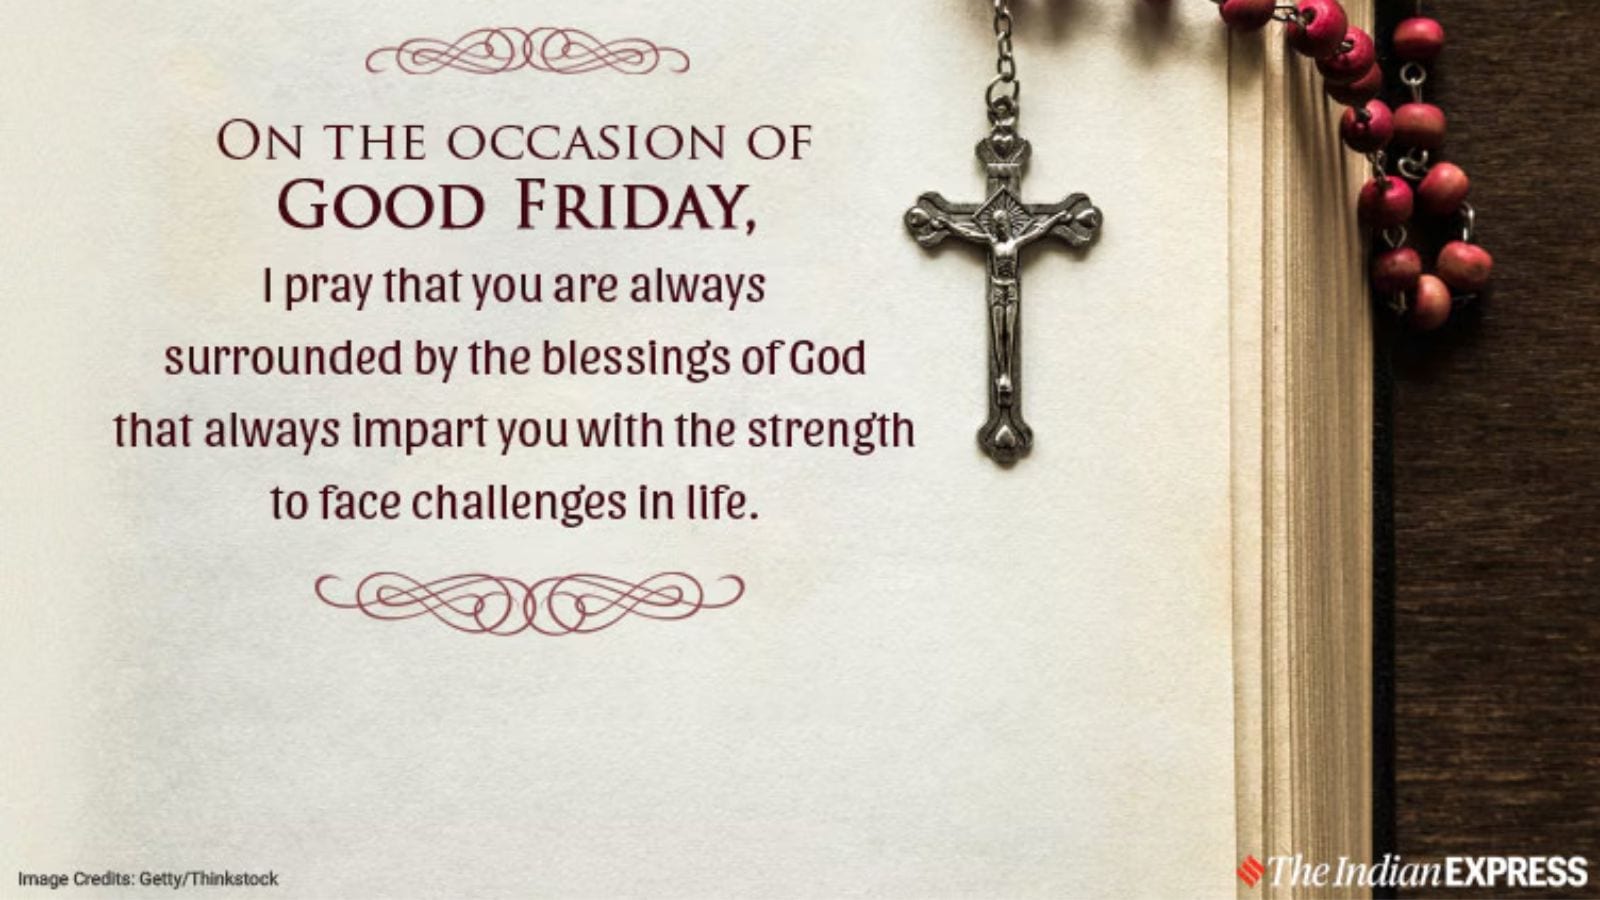 ON THE OCCASION OF
GOOD FRIDAY,
I pray that you are always
surrounded by the blessings of God
that always impart you with the strength
to face challenges in life.
Image Credits: Getty/Thinkstock
The Indian EXPRESS